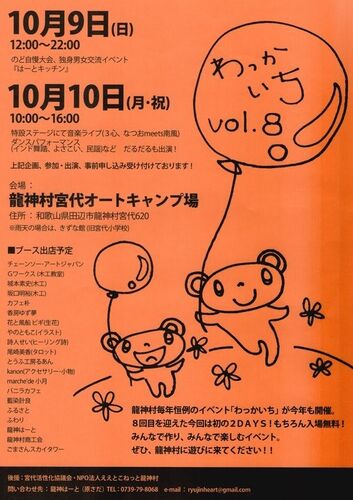 10月9日(日)
12:00〜22:00
のど自慢大会、独身男女交流イベント
『はーとキッチン』
10月10日(月・祝)
10:00〜16:00
特設ステージにて音楽ライブ(3心、なつおmeets南風)
ダンスパフォーマンス
(インド舞踏、よさこい、民謡など だるだるも出演!
上記企画、参加・出演、事前申し込み受け付けております!
わっかいち
vol.8
会場:
龍神村宮代オートキャンプ場
住所:和歌山県田辺市龍神村宮代620
※雨天の場合は、きずな館(旧宮代小学校)
■ブース出店予定
チェーンソーアートジャパン
Gワークス(木工教室)
城本素史(木工)
坂口明裕(木工)
カフェ朴
香房ゆず夢
花と風船 ピギ(生花)
やのともこ(イラスト)
詩人せい(ヒーリング詩)
尾崎美香(タロット)
とうふ工房るあん
kanon(アクセサリー・小物)
marche'de 小月
バニラカフェ
藍染計良
ふるさと
ふわり
龍神はーと
龍神村商工会
ごまさんスカイタワー
龍神村毎年恒例のイベント「わっかいち」が今年も開催。
8回目を迎えた今回は初の2DAYS!もちろん入場無料!
みんなで作り、みんなで楽しむイベント。
ぜひ、龍神村に遊びに来てください!!
後援:宮代活性化協議会・NPO法人ええとこねっと龍神村
問い合わせ先:龍神はーと(原さだ) TEL:0739-79-8068 e-mail:ryujinheart@gmail.com